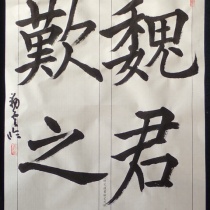 魏君
歎之